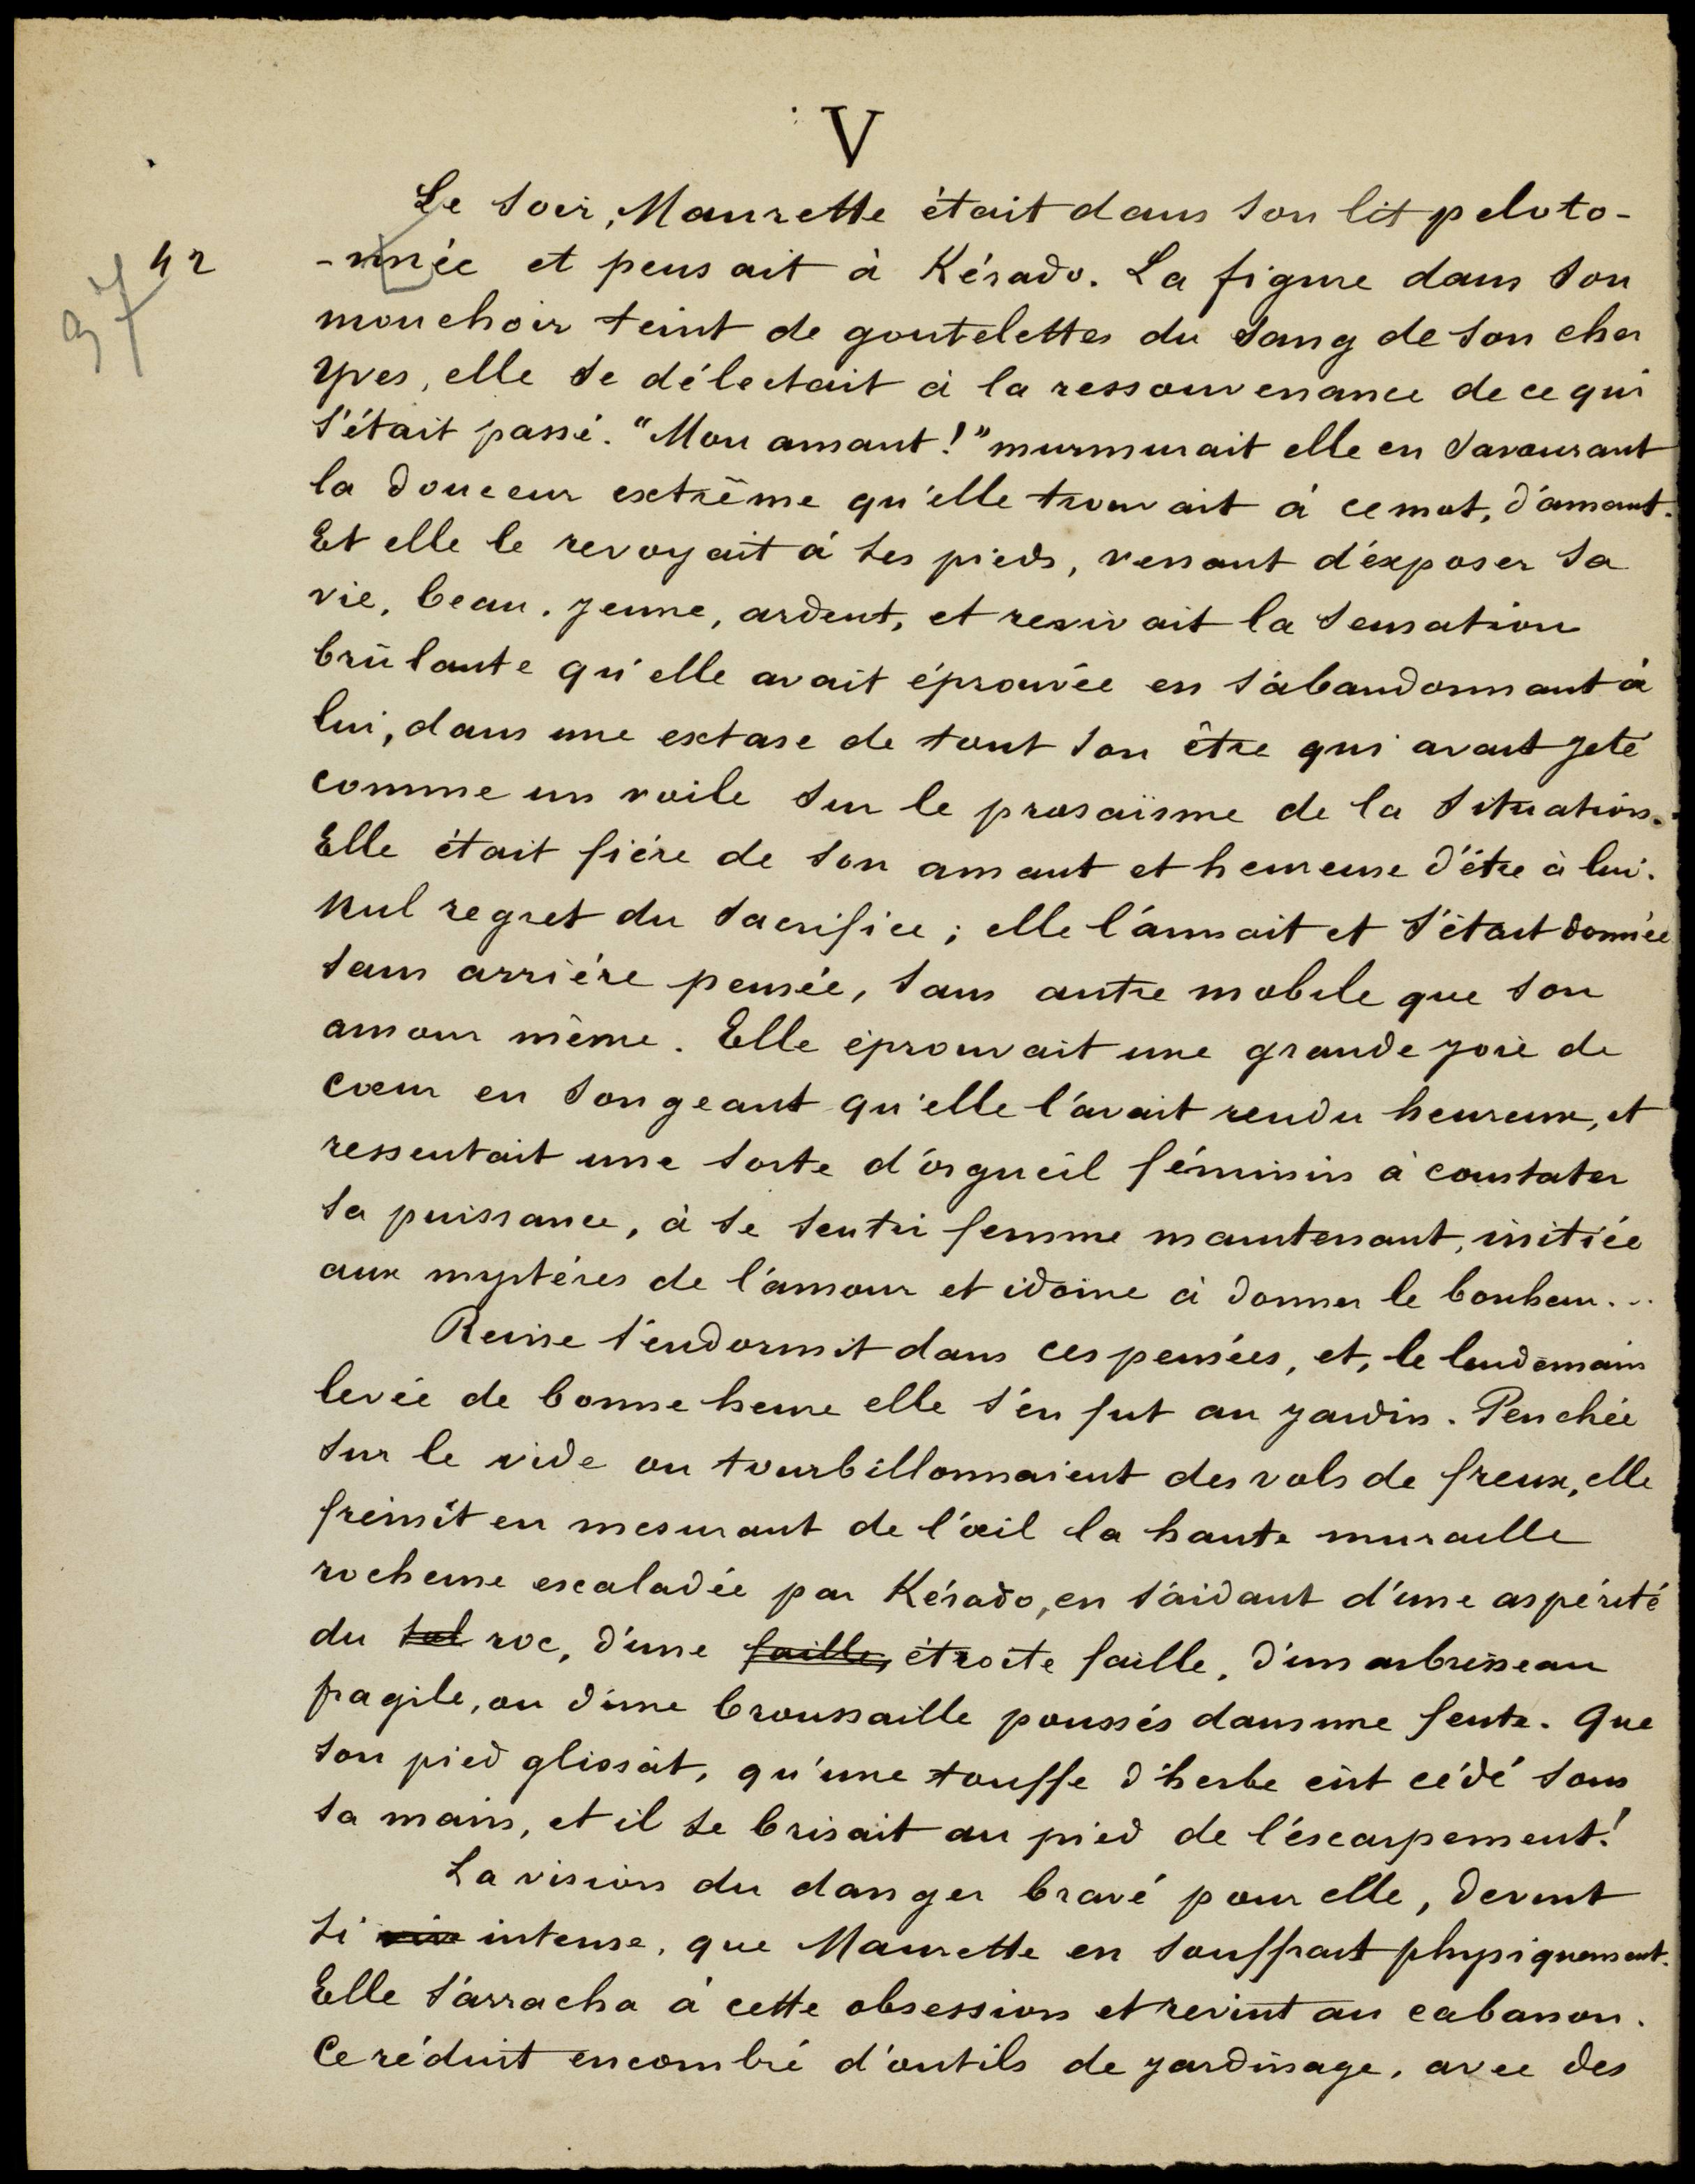 V
Le soir, Maurette était dans son lit peloto-
-nnée et pensait à Kérado. La figure dans son
mouchoir teint de goutelettes du sang de son cher
Yves, elle se délectait à la ressouvenance de ce qui
s'était passé. "Mon amant!" murmurait elle en savourant
la douceur extrême qu'elle trouvait à ce mot, d'amant.
Et elle le revoyait à ses pieds, venant d'exposer sa
vie, beau, jeune, ardent, et revivait la sensation
brûlante qu'elle avait éprouvée en s'abandonnant à
lui, dans une extase de tout son être qui avait jeté
comme un voile sur le prosaïsme de la situation.
Elle était fière de son amant et heureuse d'être à lui.
Nul regret du sacrifice; elle l'aimait et s'était donnée
sans arrière pensée, sans autre mobile que son
amour même. Elle éprouvait une grande joie de
cœur en songeant qu'elle l'avait rendu heureux, et
ressentait une sorte d'orgueil féminin à constater
sa puissance, à se sentir femme maintenant, initiée
aux mystères de l'amour et idoine à donner le bonheur...
Reine s'endormit dans ces pensées, et, le lendemain
levée de bonne heure elle s'en fut au jardin. Penchée
sur le vide ou tourbillonnaient des vols de freux, elle
frémit en mesurant de l'œil la haute muraille
rocheuse escaladée par Kérado, en s'aidant d'une aspérité
du sol roc, d'une faille, étroite faille, d'un arbrisseau
fragile, ou d'une broussaille poussés dans une fente. Que
son pied glissât, qu'une touffe d'herbe eût cédé sous
sa main, et il se brisait au pied de l'escarpement!
La vision du danger bravé pour elle, devint
si vive intense, que Maurette en souffrait physiquement.
Elle s'arracha à cette obsession et revint au cabanon.
Ce réduit encombré d'outils de jardinage, avec des
42
37